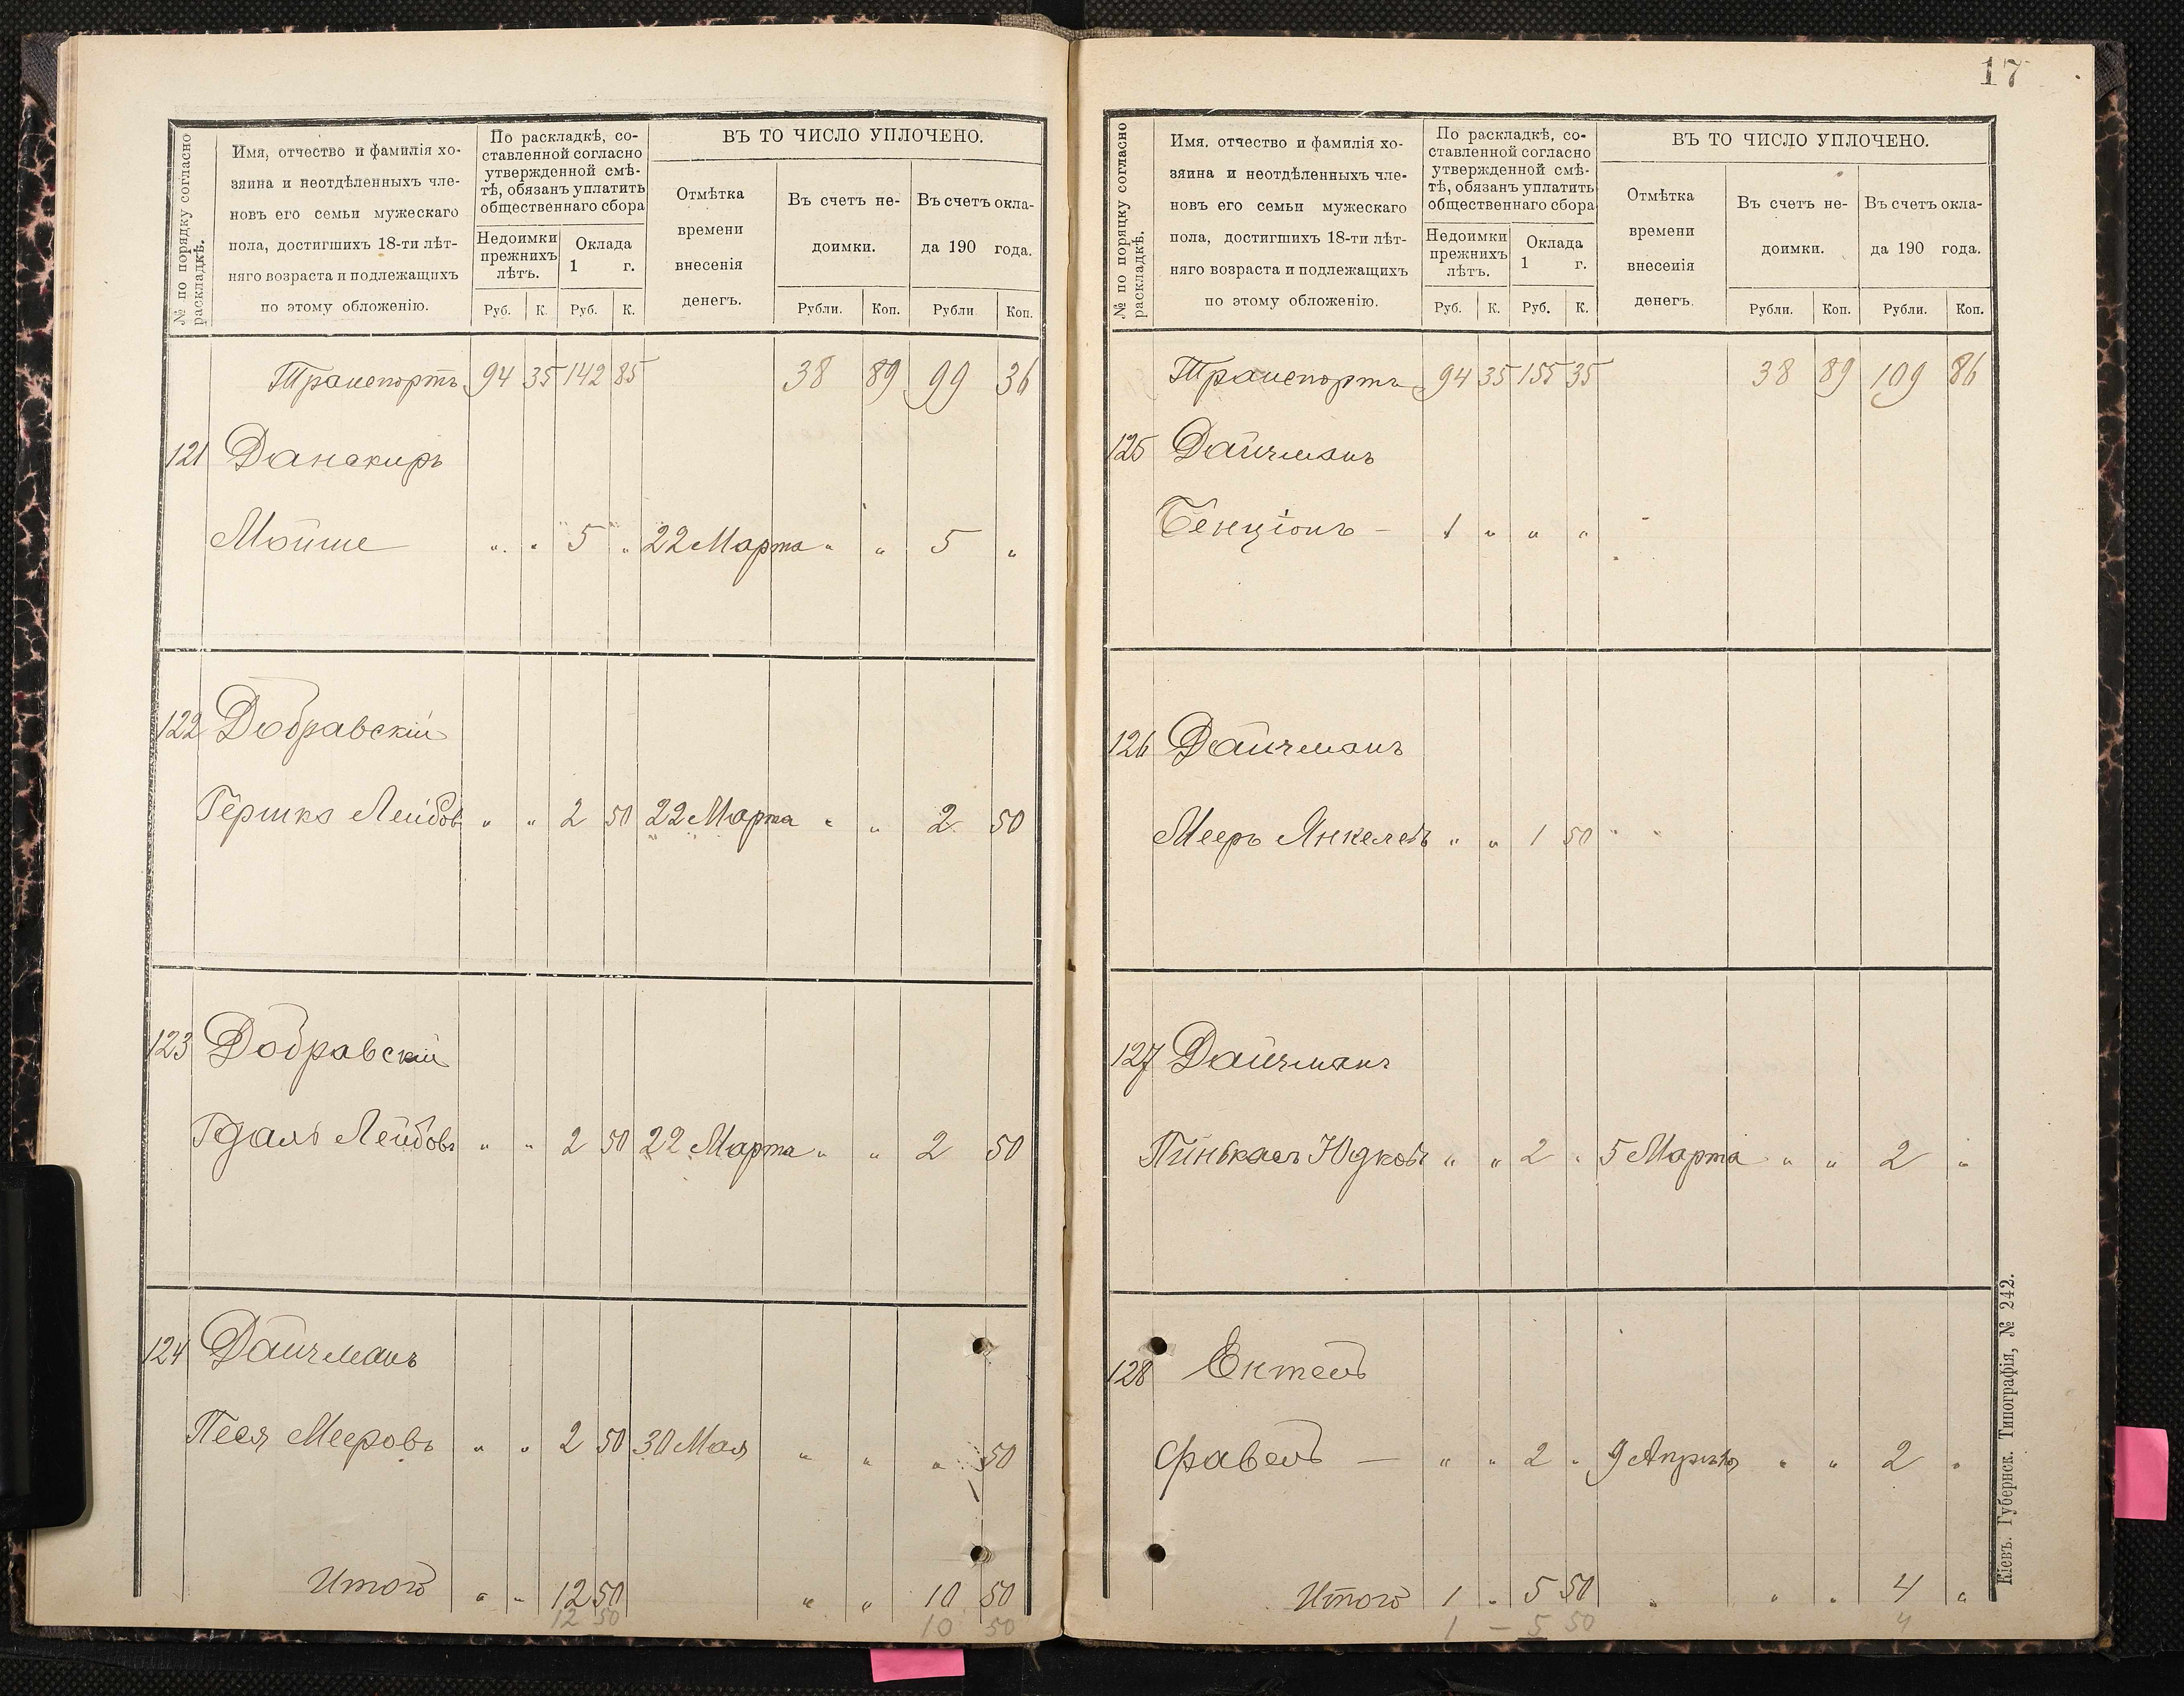 № по порядку согласно
раскладкѣ.
Имя, отчество и фамилія хо-
зяина и неотдѣленныхъ чле-
новъ его семьи мужескаго
пола, достигшихъ 18-ти лѣт-
няго возраста и подлежащихъ
по этому обложенію.
По раскладкѣ, со-
ставленной согласно
утвержденной смѣ-
тѣ, обязанъ уплатить
общественнаго сбора
Недоимки
прежнихъ
лѣтъ.
Оклада
1 г.
ВЪ ТО ЧИСЛО УПЛОЧЕНО.
Отмѣтка
времени
внесенія
денегъ.
Въ счетъ не-
доимки.
Въ счетъ окла-
да 190 года.
Руб. К. Руб. К. Рубли. Коп. Рубли Коп.
Транспортъ 94 35 142 85 38 89 99 36
121 Данскиръ
Мойше " " 5 " 22 Марта " " 5 "
122 Добравскій
Гершко Лейбов " " 2 50 22 Марта " " 2 50
123 Добравскій
Гдаль Лейбовъ " " 2 50 22 Марта " " 2 50
124 Дайчманъ
Песя Мееровъ " " 2 50 30 Мая " " " 50
Итого " " 12 50 " " 10 50
12 50 10 50
17
№ по поряцку согласно
раскладкѣ.
Имя. отчество и фамилія хо-
зяина и неотдѣленныхъ чле-
новъ его семьи мужескаго
пола, достигшихъ 18-ти лѣт-
няго возраста и подлежащихъ
по этому обложенію.
По раскладкѣ, со-
ставленной согласно
утвержденной смѣ-
тѣ, обязанъ уплатить
общественнаго сбора
Недоимки
прежнихъ
лѣтъ.
Оклада
1 г.
ВЪ ТО ЧИСЛО УПЛОЧЕНО.
Отмѣтка
времени
внесенія
денегъ.
Въ счетъ не-
доимки.
Въ счетъ окла-
да 190 года.
Руб. К. Руб. К. Рубли. Коп. Рубли. Коп.
Транспортъ 94 35 155 35 38 89 109 86
125 Дайчманъ
Бенціонъ – 1 " " "
126 Дайчманъ
Мееръ Янкелевъ " " 1 50 " "
127 Дайчманъ
Пинькасъ Юдковъ " " 2 " 5 Марта " " 2 "
128 Ентель
Фавель — " " 2 " 9 Апрѣля " " 2 "
Итого 1 " 5 50 " " " 4 "
1 – 5 50 4
Кіевъ. Губернск. Типографія, № 242.